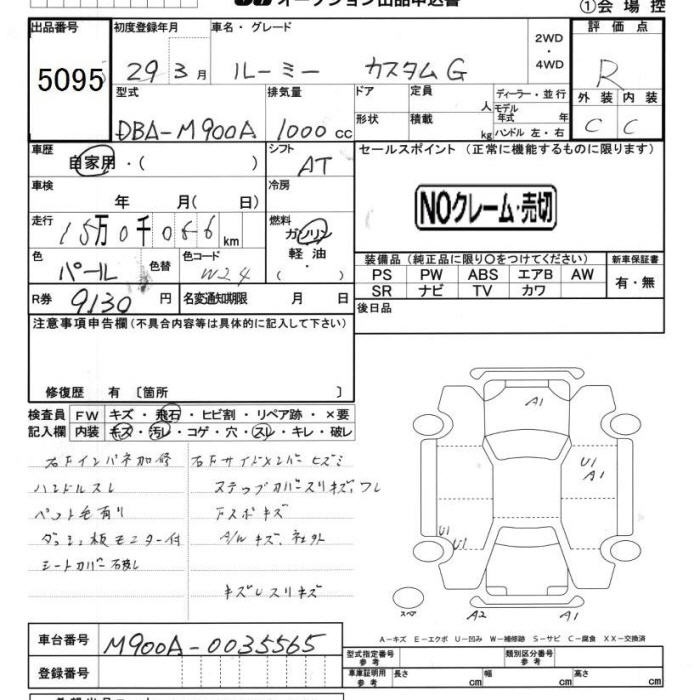 オークション出品申込書
①会場控
出品番号
5095
初度登録年月
29 3月
車名・グレード
ルーミー カスタムG
2WD
・
4WD
評価点
R
外装 内装
C C
型式
DBA-M900A
排気量
1000cc
ドア
形状
定員
人
積載
kg
ディーラー・並行
モデル
年式 年
ハンドル 左・右
車歴
自家用・( )
シフト
AT
セールスポイント (正常に機能するものに限ります)
NOクレーム・売切
車検
年 月( 日)
冷房
走行
15万0千066km
燃料
ガソリン
軽油
( )
色
パール
色替
色コード
W24
装備品(純正品に限り〇をつけてください)
新車保証書
PS PW ABS エアB AW
SR ナビ TV カワ
有・無
R券
9130円
名変通知期限 月 日
後日品
注意事項申告欄(不具合内容等は具体的に記入して下さい)
修復歴 有〔箇所 〕
検査員 FW キズ・飛石・ヒビ割・リペア跡・×要
記入欄 内装 キズ・汚レ・コゲ・穴・スレ・キレ・破レ
右Fインパネ加修
右Fサイドメンバーヒズミ
ハンドルスレ
ステップカバースリキズ、ワレ
ペット毛有り
Fスポキズ
ダッシュ板モニター付
A/Wキズ、社外
シートカバー破レ
キズUスリキズ
A1
U1
A1
U1
U1
スペア
A2
A1
A-キズ E-エクボ U-凹み W-補修跡 S-サビ C-腐食 XX-交換済
車台番号
M900A-0035565
登録番号
型式指定番号
参考
類別区分番号
参考
車庫証明用
参考
長さ cm
幅 cm
高さ cm